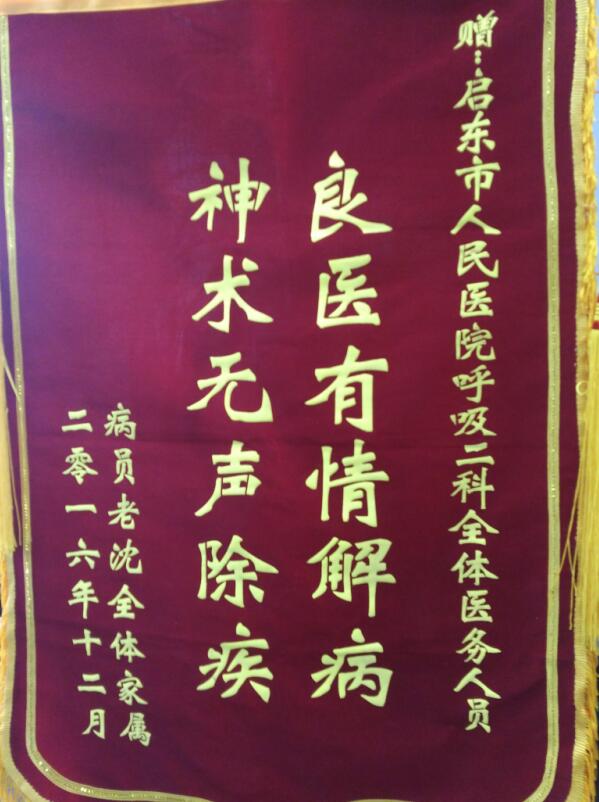 赠：启东市人民医院呼吸二科全体医务人员
良医有情解病
神术无声除疾
病员老沈全体家属
二零一六年十二月